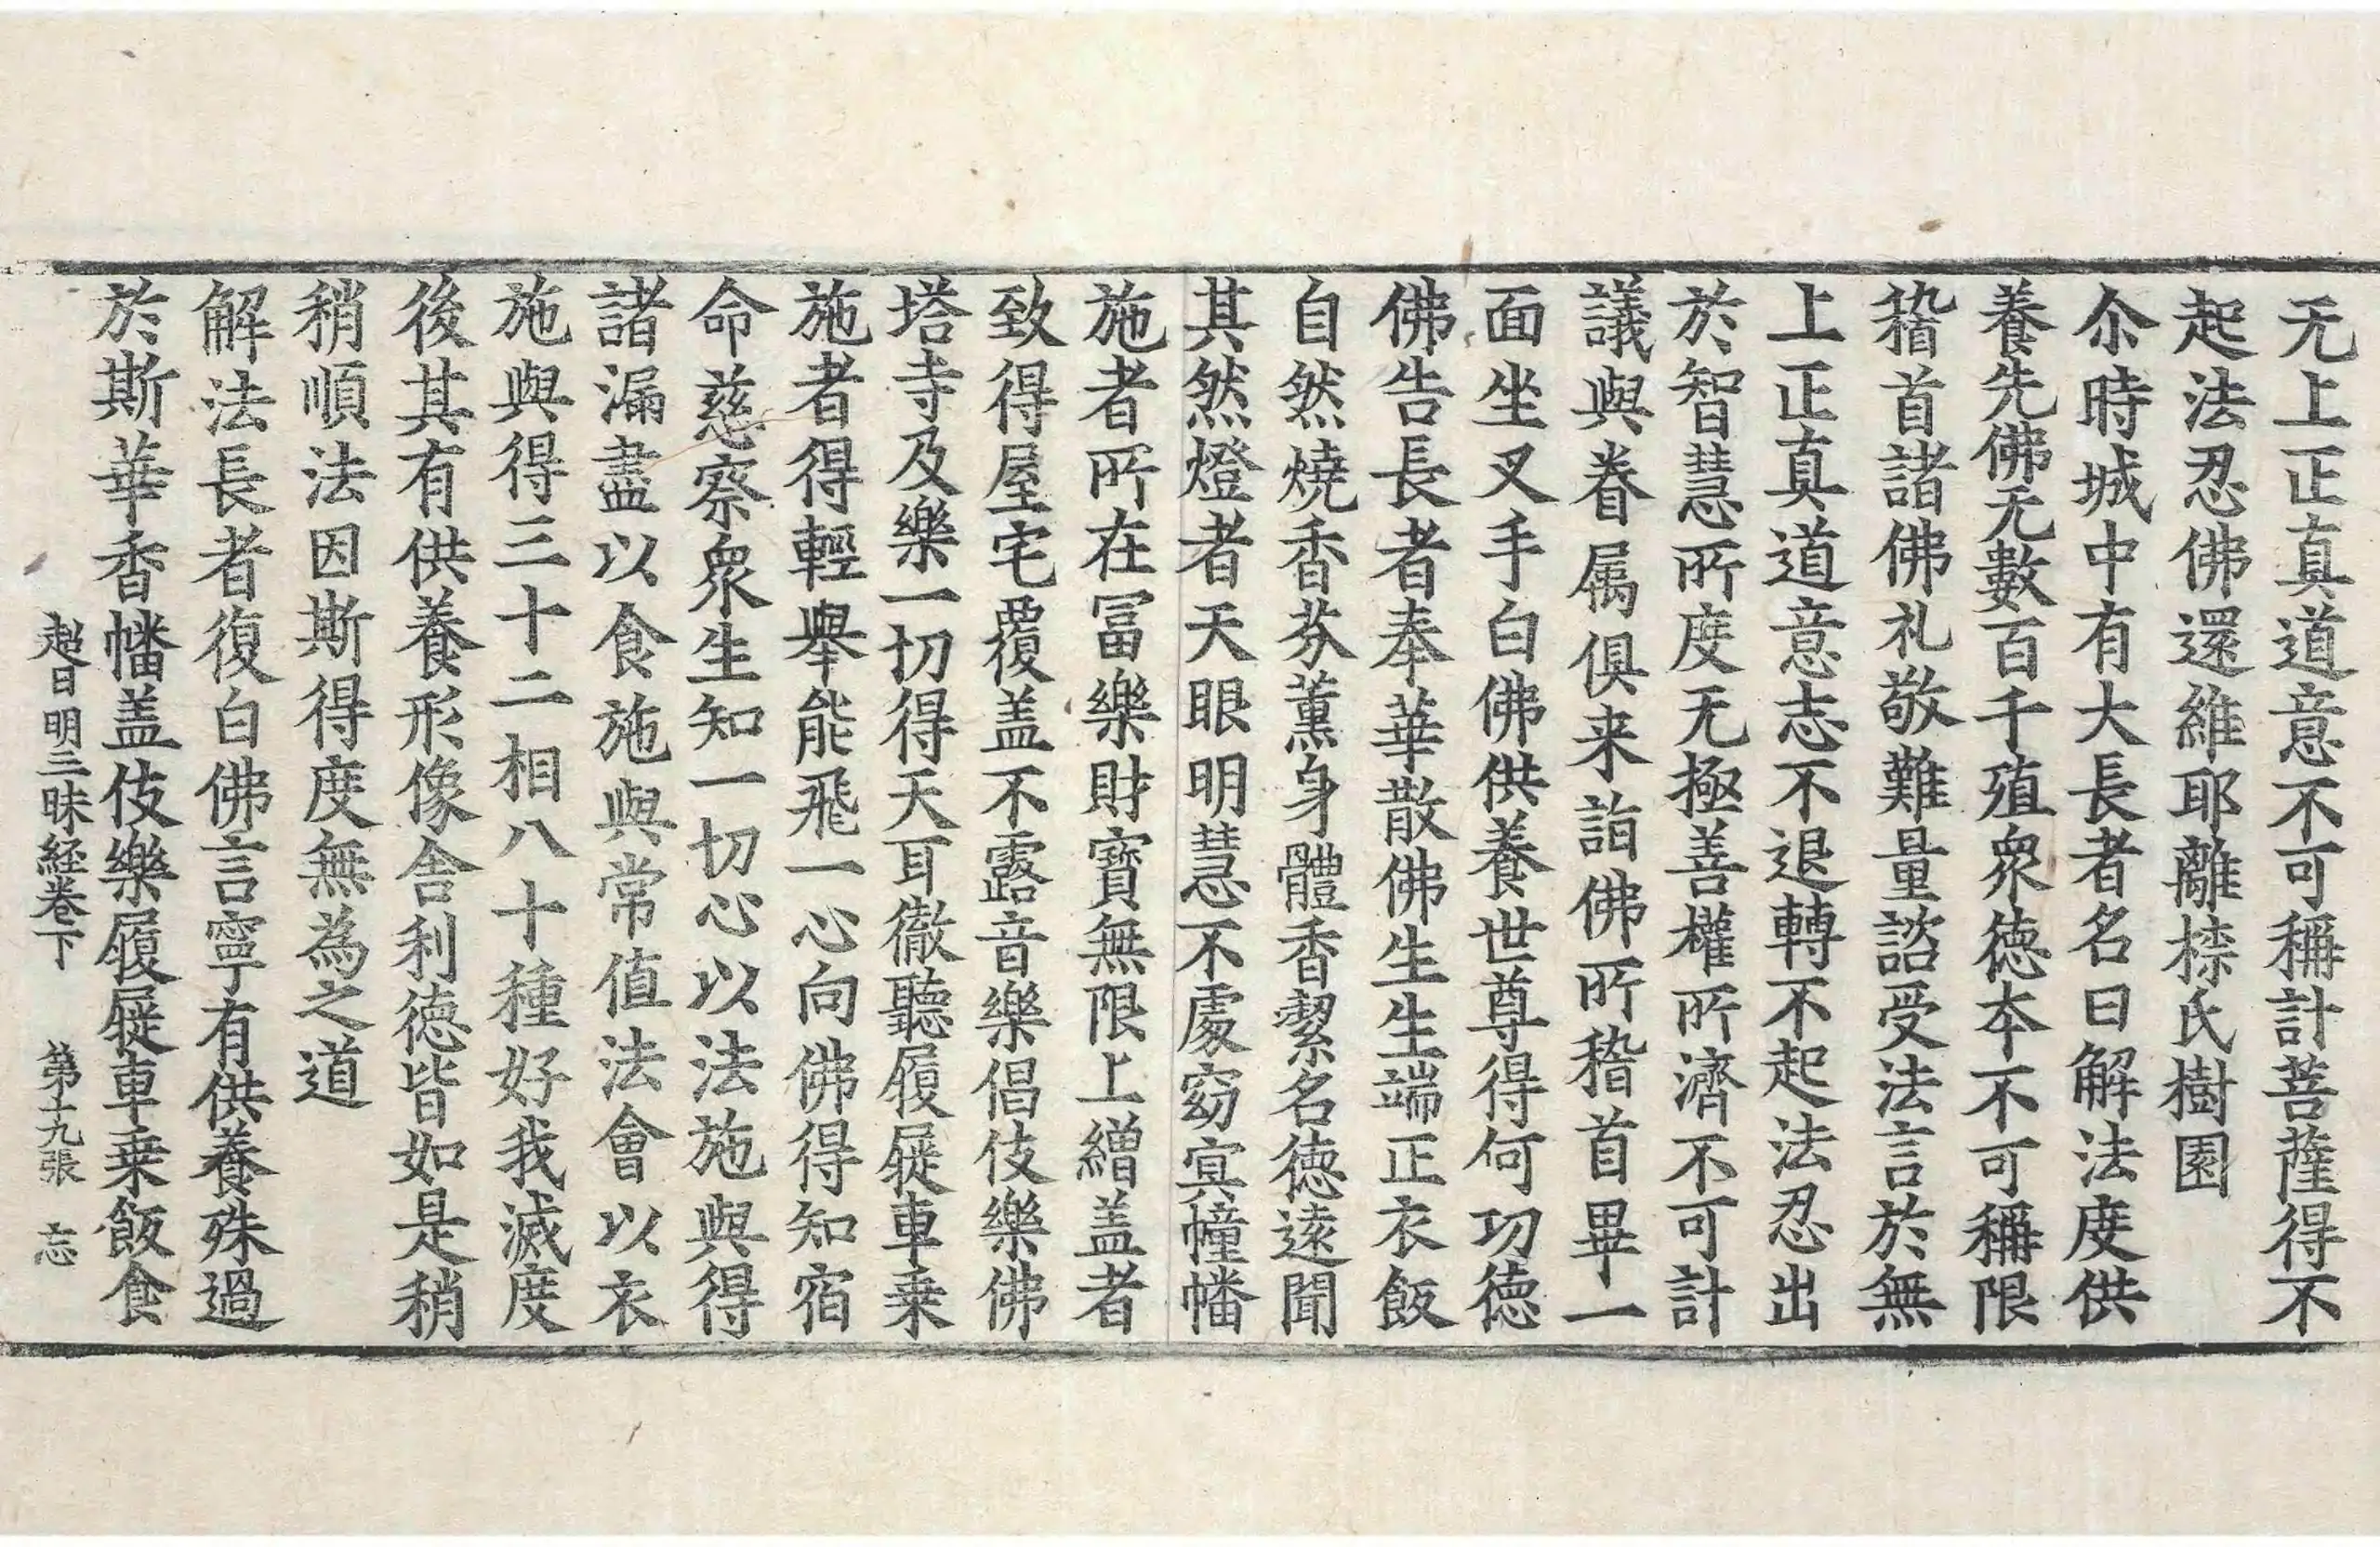 无上正真道意不可稱計菩薩得不
起法忍佛還維耶離㮈氏樹園
尒時城中有大長者名曰解法度供
養先佛无數百千殖衆德本不可稱限
稽首諸佛礼敬難量諮受法言於無
上正真道意志不退轉不起法忍出
於智慧所度无極善權所濟不可計
議與眷属俱来詣佛所稽首畢一
面坐叉手白佛供養世尊得何功德
佛告長者奉華散佛生生端正衣飯
自然燒香芬薰身體香潔名德遠聞
其然燈者天眼明慧不處窈冥幢幡
施者所在冨樂財寶無限上繒盖者
致得屋宅覆盖不露音樂倡伎樂佛
塔寺及樂一切得天耳徹聽履屣車乗
施者得輕舉能飛一心向佛得知宿
命慈察衆生知一切心以法施與得
諸漏盡以食施與常值法會以衣
施與得三十二相八十種好我滅度
後其有供養形像舎利德皆如是稍
稍順法因斯得度無為之道
解法長者復白佛言寧有供養殊過
於斯華香幡盖伎樂履屣車乗飯食
超日明三昧経卷下 第十九張 忘